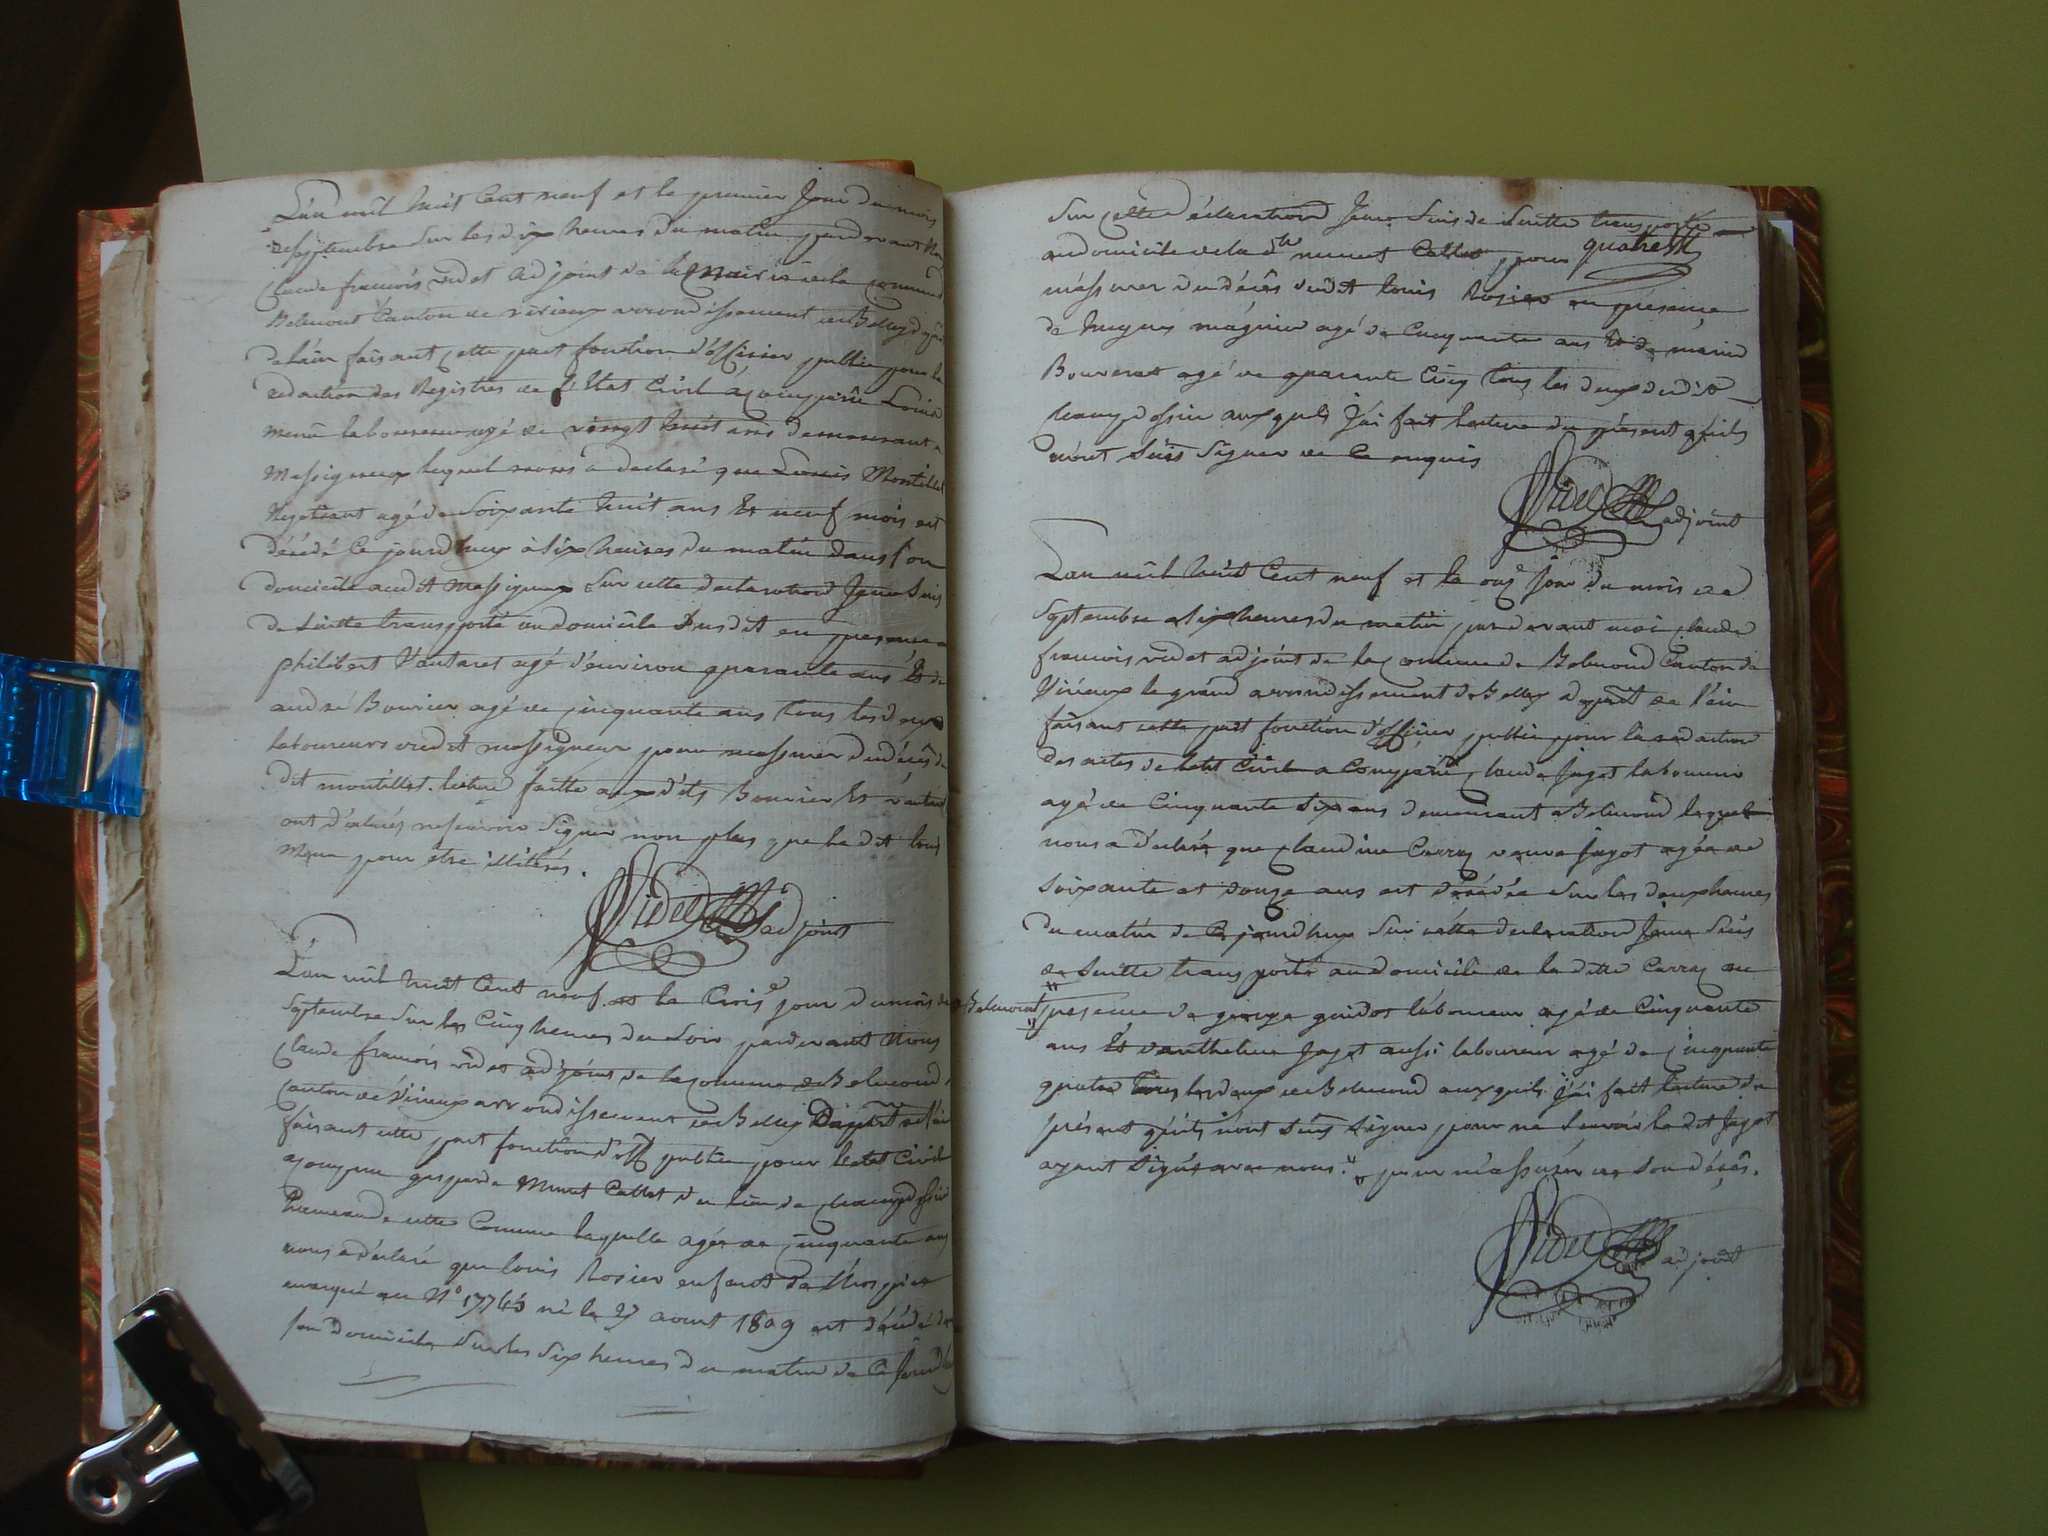 L'an mil huit Cent neuf et le premier Jour du mois
de septembre Sur les dix heures du matin pardevant Nous
Claude francois videt adjoint de la Mairie de la commune
Belmont Canton de virieux arrondissement de Belley dept
de l'ain faisant cette part fonction d'officier public pour la
redaction des Registres de L'Etat Civil a comparu Louis
laboureur agé de vingt huit ans demeurant a
Massigneux lequel nous a declaré que Louis Montillet
Negotiant agé de Soixante huit ans Et neuf mois est
décédé Ce jourdhuy à Six heures du matin dans son
domicile audit Massigneux Sur cette declaration Je me Suis
de Suitte transporté au domicile Susdit en presence de
philibert Vautaret agé d'environ quarante ans Et de
andré Bouvier agé de cinquante ans tous les deux
laboureurs dudit massigneux pour massurer du décês du
dit montillet. lecture faitte aux dits Bouvier Et
ont déclarés ne scavoir Signer non plus que le dit louis
pour être illiterés.
Videt adjoint
L'an mil huit Cent neuf et le Troise jour du mois de
Septembre Sur les Cinq heures du Soir pardevant Nous
Claude francois videt adjoint de la comune de Belmond
Canton de Virieux arrondissement de Belley Depart de l'ain
faisant cette part fonction d'off public pour letat Civil
a comparue Callet du lieu de champdossin
hameau de cette Commune laquelle agée de cinquante ans
nous a déclaré que louis Rosier enfant de l'hospice
marqué au No 17745 né le 27 aout 1809 est décédé dans
son domicile Sur les Six heures du matin de Ce Jourdhuy
Sur cette déclaration Je me Suis de Suitte transporté
au domicile de la dte Callet pour
m'assurer du décês dudit louis Rosier en présence
de agé de Cinquante ans Et de
agé de quarante Cinq tous les deux dudit
champdossin auxquels j'ai fait lecture du présent qu'ils
n'ont Sçus Signer de Ce enquis
Videt adjoint
L'an mil huit Cent neuf et le onze Jour du mois de
Septembre a Six heures du matin pardevant moi claude
francois videt adjoint de la Comune de Belmond Canton de
Virieux le grand arrondissement de Belley depart de l'ain
faisant cette part fonction d'officier public pour la redaction
des actes de letat Civil a Comparu claude Jagot laboureur
agé de Cinquante Six ans demeurant a Belmond lequel
nous a déclaré que claudine veuve Jagot agée de
Soixante et douze ans est décédée Sur les deux heures
du matin de Ce jourdhuy Sur cette declaration Je me Suis
de Suitte transporté au domicile de la ditte en
Belmont presence de george guidot laboureur agé de Cinquante
ans Et d'anthelme Jagot aussi laboureur agé de cinquante
quatre tous les deux de Belmond auxquels j'ai fait lecture du
présent qu'ils n'ont Sçus Signer pour ne Scavoir le dit Jagot
ayant Signé avec nous. pour m'assurer de Son décês.
Videt adjoint